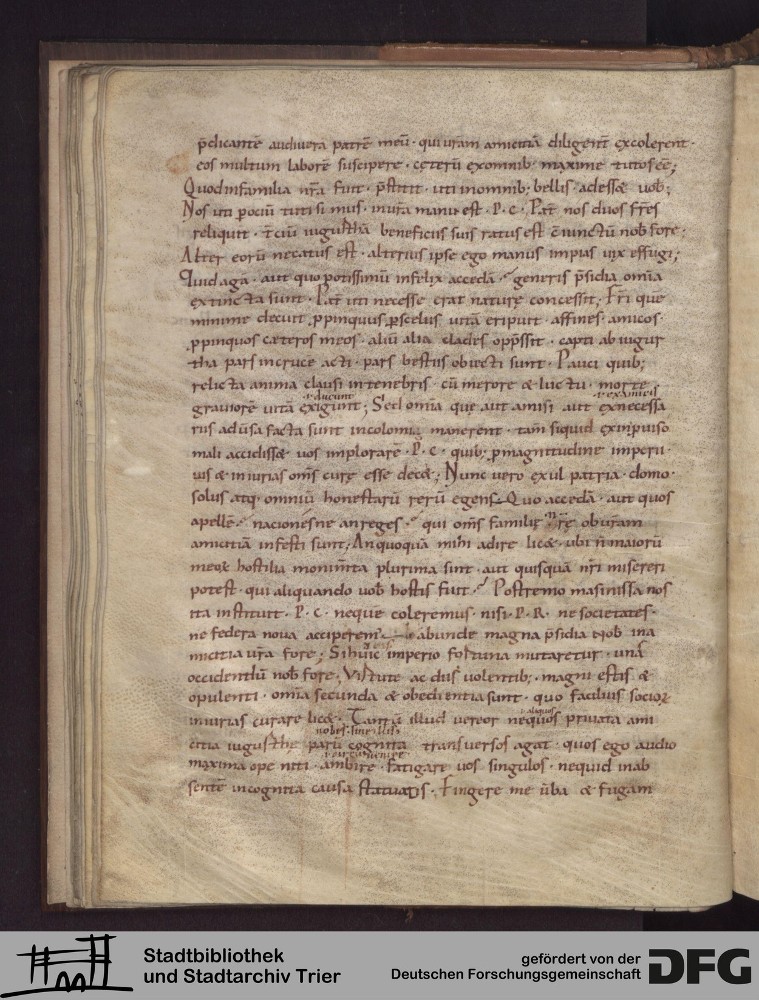 p̄dicantē audiverā patrē meū · qui urām amicitiā diligent̄ excolerent ·
eos multum laborē suscipere · ceterū exomnib; maxime tutos ee͂;
Quod infamilia nr̄a fuit · p̄stitit · uti inomnib; bellis · adesset vob̄;
Nos uti p ociū tuti simus · inur̄a manu est · P · C · Pat̄ nos duos fr̄es
reliquit · t̄ciū iugurthā beneficiis suis ratus est c̄iunctū nob̄ fore;
Alter eorū necatus est · alterius ipse ego manus impias vix effugi;
Quid agā · aut quo potissimū infelix accedā · generis p̄sidia om̄ia
extincta sunt · Pat̄ uti necesse erat nature concessit; Fr̄i que
minime decuit p̱pinquus p̱ scelus vitā eripuit · affines · amicos ·
p̱pinquos cæteros meos · aliū alia clades opp̄ssit · capti ab iugur
tha pars incruce acti · pars bestiis obiecti sunt · Pauci quib;
relicta anima clausi intenebris · cū merore & luctu · morte
graviorē vitā exigunt; Sed om̄ia que aut amisi aut exnecessa
riis adūsa facta sunt incolomia manerent · tam̄ siquid exinp̱viso
mali accidisset vos implorarē · P · C · quib; p̱ magnitudine imperii ·
ius & iniurias om̄s cure esse decet; Nunc vero exul patria · domo ·
solus atq; omniū honestarū rerū egens · Quo accedā · aut quos
apellē · nacionesne an reges · qui om̄s familie nr̄e ob ur̄am
amicitiā infesti sunt; An quoquā mihi adire licet · ubi n̄ maiorū
meoꝝ hostilia monim̄ta plurima sint · aut quisquā nr̄i misereri
potest · qui aliquando vob̄ hostis fuit · Postremo masinissa nos
ita instituit · P · C · neque coleremus · nisi · P · R · ne societates ·
ne federa nova acciperem̄ · abunde magna p̄sidia nob̄ ina
micitia ur̄a fore; Si huic imperio fortuna mutaretur · unā
occidendū nob̄ fore; Virtute ac diis volentib; · magni estis &
opulenti · om̄ia secunda & obedientia sunt · quo facilius socioꝝ
iniurias curare licet · Tantū illud vereor nequos privata ami
citia iugurthe parū cognita transversos agat · quos ego audio
maxima ope niti · ambire · fatigare vos singulos · nequid inab
sentē incognita causa statuatis · Fingere me v̄ba & fugam
Stadtbibliothek
und Stadtarchiv Trier
gefördert von der
Deutschen Forschungsgemeinschaft
DFG